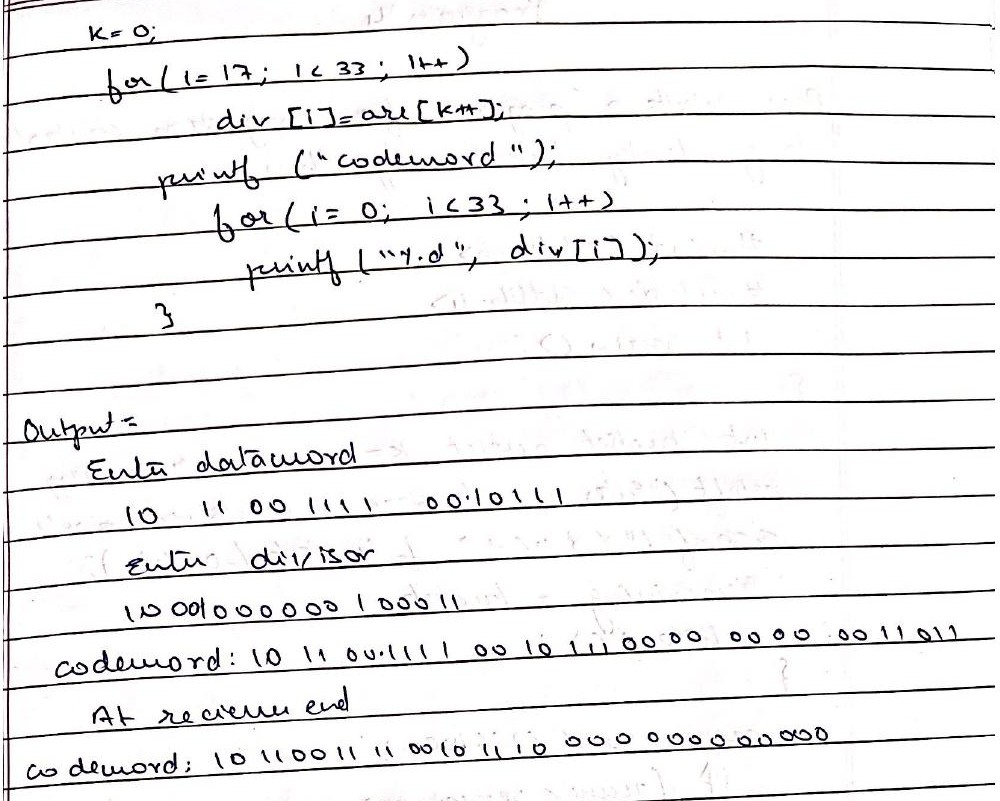 K= 0;
for (i= 17; i < 33; i++)
div [i]= arr[k++];
printf ("codeword");
for (i= 0; i<33; i++)
printf ("%d", div[i]);
}
Output =
Enter dataword
10 11 00 1111 0010111
Enter divisor
10001000000100011
codeword: 10 11 00 1111 00 10 111 0000 0000 00 11011
At reciever end
codeword: 10 110011 11 0010 1110 000 000000000